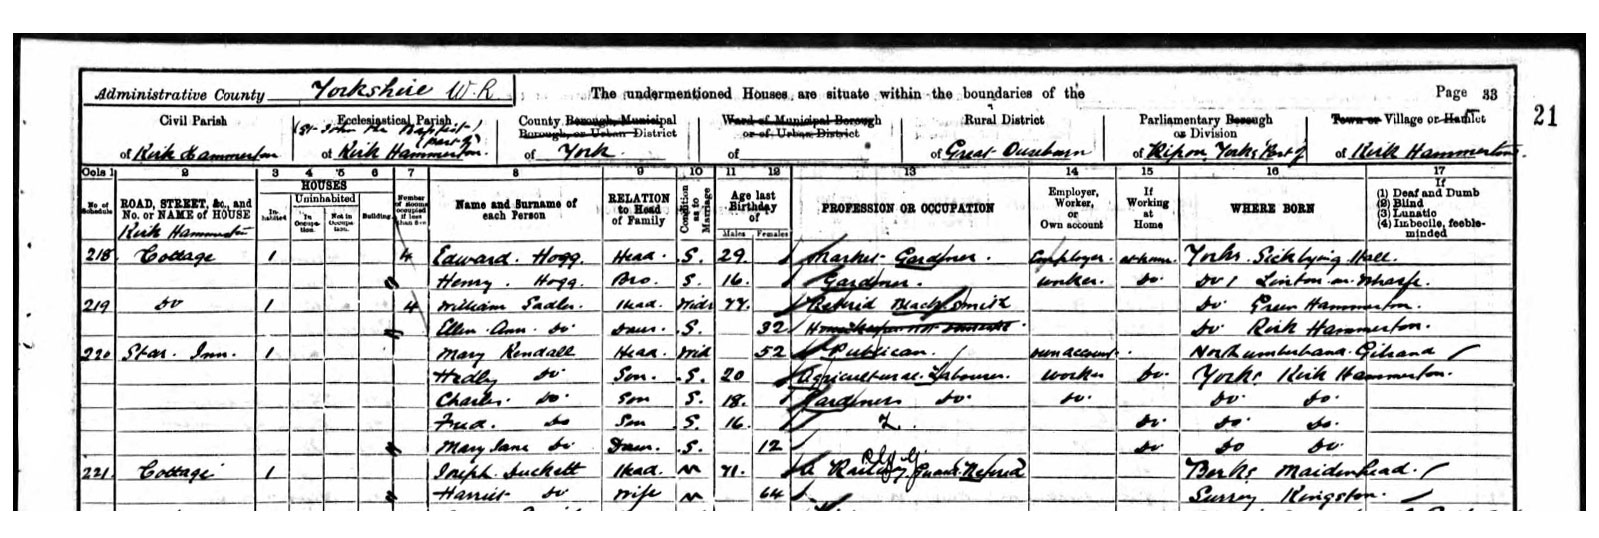 Administrative County Yorkshire W.R. The undermentioned Houses are situate within the boundaries of the Page 33
21
Civil Parish Ecclesiastical Parish County Borough, Municipal Borough, or Urban District Ward of Municipal Borough or of Urban District Rural District Parliamentary Borough or Division Town or Village or Hamlet
of Kirk Hammerton (St John the Baptist) (part of) of Kirk Hammerton. of York of of Great Ouseburn of Ripon, Yorks Part of of Kirk Hammerton
Cols 1 2 3 4 5 6 7 8 9 10 11 12 13 14 15 16 17
No. of Schedule ROAD, STREET, &c., and No. or NAME of HOUSE HOUSES Inhabited Uninhabited In Occupation. Not in Occupation. Building Number of rooms occupied if less than five Name and Surname of each Person RELATION to Head of Family Condition as to Marriage Age last Birthday of Males Females PROFESSION OR OCCUPATION Employer, Worker, or Own account If Working at Home WHERE BORN If (1) Deaf and Dumb (2) Blind (3) Lunatic (4) Imbecile, feeble-minded
Kirk Hammerton
218 Cottage 1 4 Edward Hogg Head S. 29 Market Gardner. Employer. at home. Yorks. Hall.
Henry Hogg. Bro. S. 16 Gardner. worker. Do. Do Linton on Wharfe.
219 Do 1 4 William Sadler Head. Widr 77. Retired Blacksmith Do. Green Hammerton.
Ellen Ann Do Daur. S. 32 Do Kirk Hammerton.
220 Star Inn. 1 Mary Kendall Head. Wid 52 Publican. own account. Northumberland Gilsland
Hedly Do Son. S. 20 Agricultural Labourer. worker Do. Yorks Kirk Hammerton.
Charles Do. Son S. 18. Gardiners Do. Do. Do Do.
Fred. Do Son S. 16. Do. Do. Do.
Mary Jane Do Daur. S. 12 Do Do Do
221 Cottage 1 Joseph Duckett Head. M 71. Railway Guard Retired Berks Maidenhead.
Harriet Do Wife M 64 Surrey Kingston.